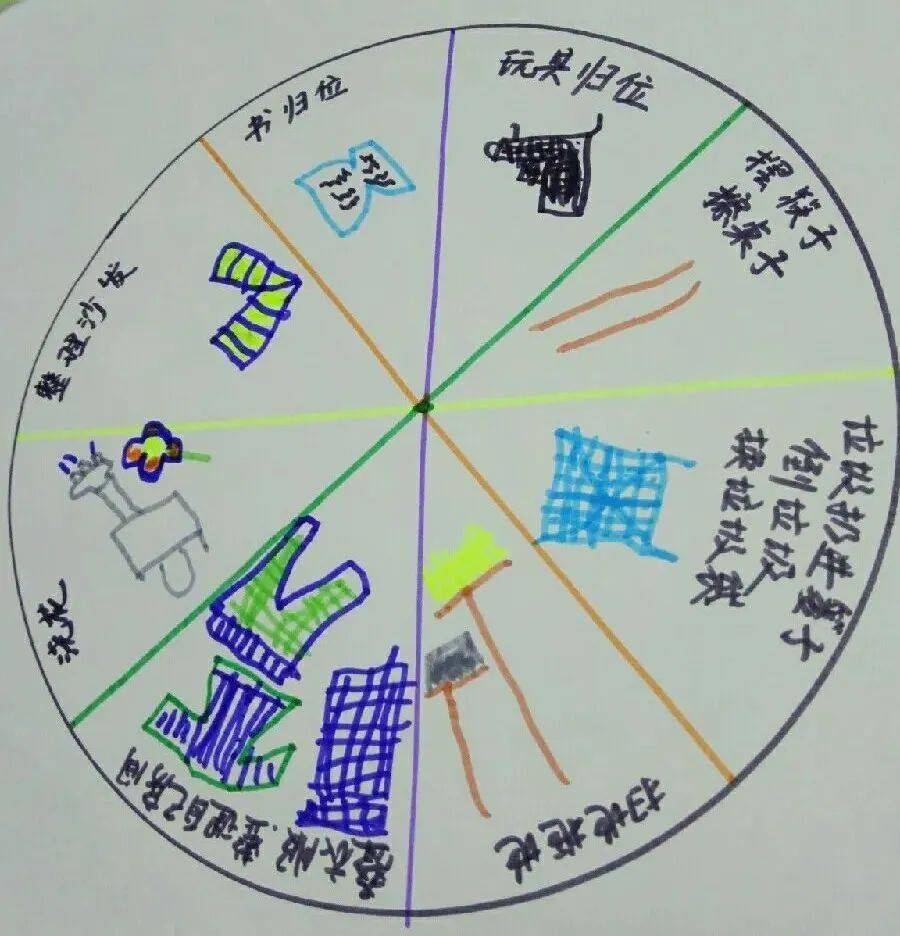 玩具归位
摆筷子
擦桌子
垃圾扔进篓子
倒垃圾
换垃圾袋
扫地拖地
叠衣服、整理自己房间
浇花
整理沙发
书归位